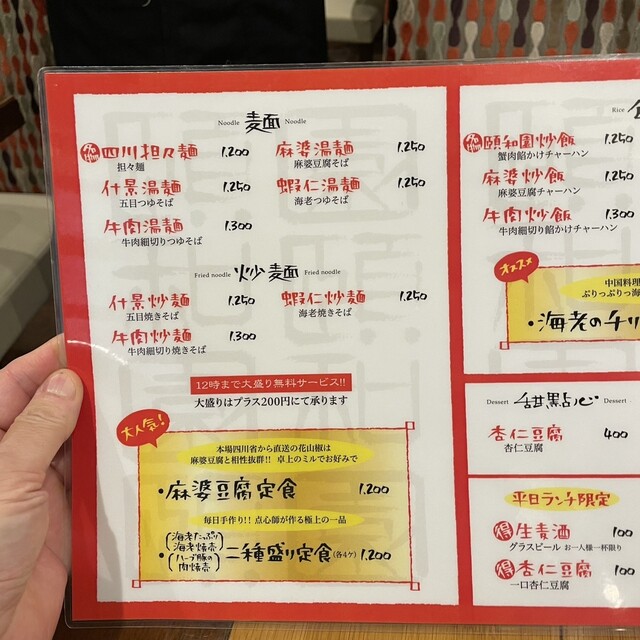 Noodle 麺 Noodle
四川担々麺 1.200
担々麺
麻婆湯麺 1.250
麻婆豆腐そば
什景湯麺 1.250
五目つゆそば
蝦仁湯麺 1.250
海老つゆそば
牛肉湯麺 1.300
牛肉細切りつゆそば
Fried noodle 炒麺 Fried noodle
什景炒麺 1.250
五目焼きそば
蝦仁炒麺 1.250
海老焼きそば
牛肉炒麺 1.300
牛肉細切り焼きそば
12時まで大盛り無料サービス!!
大盛りはプラス200円にて承ります
大人気!
本場四川省から直送の花山椒は
麻婆豆腐と相性抜群!! 卓上のミルでお好みで
・麻婆豆腐定食 1.200
毎日手作り!! 点心師が作る極上の一品
・(海老たっぷり海老焼売)
(ハーブ豚の肉焼売)
二種盛り定食(各4ケ) 1.200
Rice
頤和園炒飯 1.250
蟹肉餡かけチャーハン
麻婆炒飯 1.250
麻婆豆腐チャーハン
牛肉炒飯 1.300
牛肉細切り餡かけチャーハン
オススメ
中国料理
ぷりっぷりっ海
・海老のチリ
Dessert 甜點心 Dessert
杏仁豆腐 400
杏仁豆腐
平日ランチ限定
得 生麦酒 100
グラスビール お一人様一杯限り
得 杏仁豆腐 100
一口杏仁豆腐